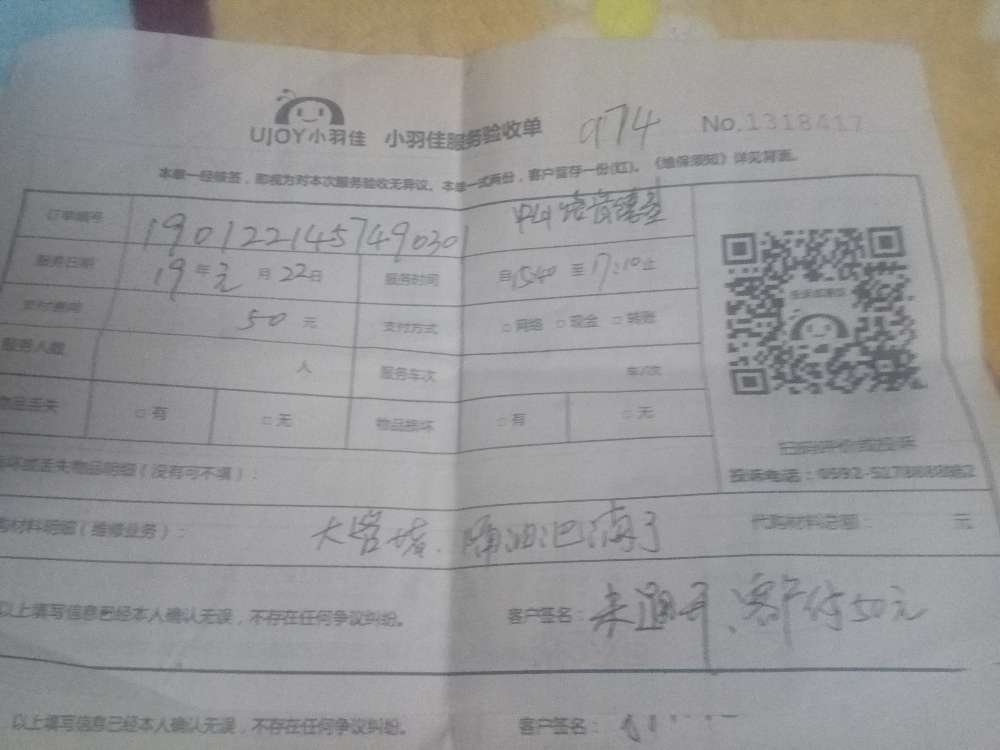 UJOY小羽佳 小羽佳服务验收单 974 No.1318417
本单一经签签，即视为对本次服务验收无异议。本单一式两份，客户留存一份(红)。《维保须知》详见背面。
订单编号 190122145749030
服务日期 19年元月22日 服务时间 自15:40至17:10止
支付费用 50元 支付方式 □网络 □现金 □转账
服务人数 人 服务车次 车/次
物品丢失 □有 □无 物品损坏 □有 □无
扫码评价或投诉
损坏或丢失物品明细（没有可不填）： 投诉电话：0592-5178888
购材料明细（维修业务）： 大管堵 满了 代购材料总额： 元
以上填写信息已经本人确认无误，不存在任何争议纠纷。 客户签名： 未通开、客户付50元
以上填写信息已经本人确认无误，不存在任何争议纠纷。 客户签名：